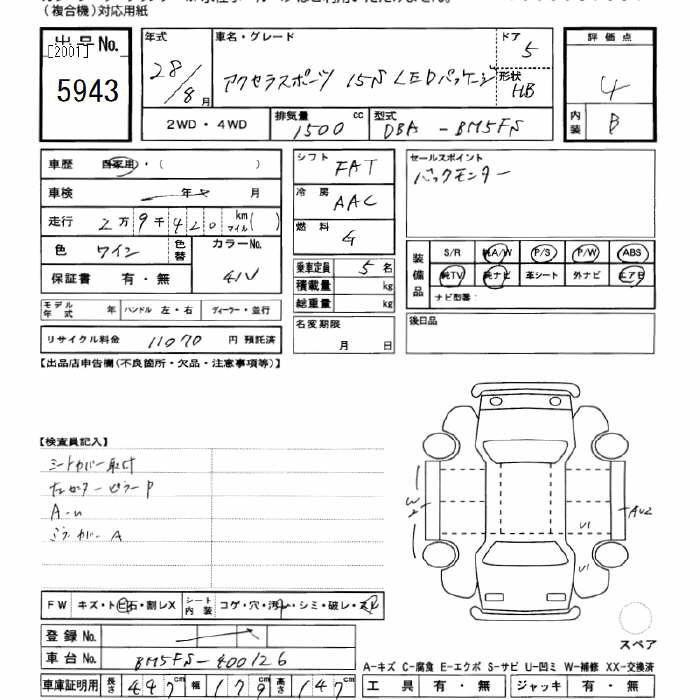 (複合機)対応用紙
出品No. [2001] 5943
年式 28/8月
車名・グレード アクセラスポーツ 15S LEDパッケージ
ドア 5
形状 HB
評価点 4
内装 B
2WD・4WD
排気量 1500 cc
型式 DBA-BM5FS
車歴 自家用・( )
車検 年 月
走行 2万9千420 km マイル( )
色 ワイン
色替
カラーNo. 41V
保証書 有・無
モデル年式 年
ハンドル 左・右
ディーラー・並行
リサイクル料金 11070 円 預託済
シフト FAT
冷房 AAC
燃料 G
乗車定員 5名
積載量 kg
総重量 kg
名変期限 月 日
セールスポイント
バックモニター
装備品 S/R 純A/W P/S P/W ABS
純TV 純ナビ 革シート 外ナビ エアB
ナビ型番
後日品
【出品店申告欄(不良箇所・欠品・注意事項等)】
【検査員記入】
シートカバー取付
A-u
A
W2
AU2
U1
U1
FW キズ・トビ石・割レX
シート内装 コゲ・穴・汚レ・シミ・破レ・スレ
登録No.
車台No. BM5FS-400126
スペア
A-キズ C-腐食 E-エクボ S-サビ U-凹ミ W-補修 XX-交換済
車庫証明用 長さ 447cm 幅 179cm 高さ 147cm
工具 有・無 ジャッキ 有・無